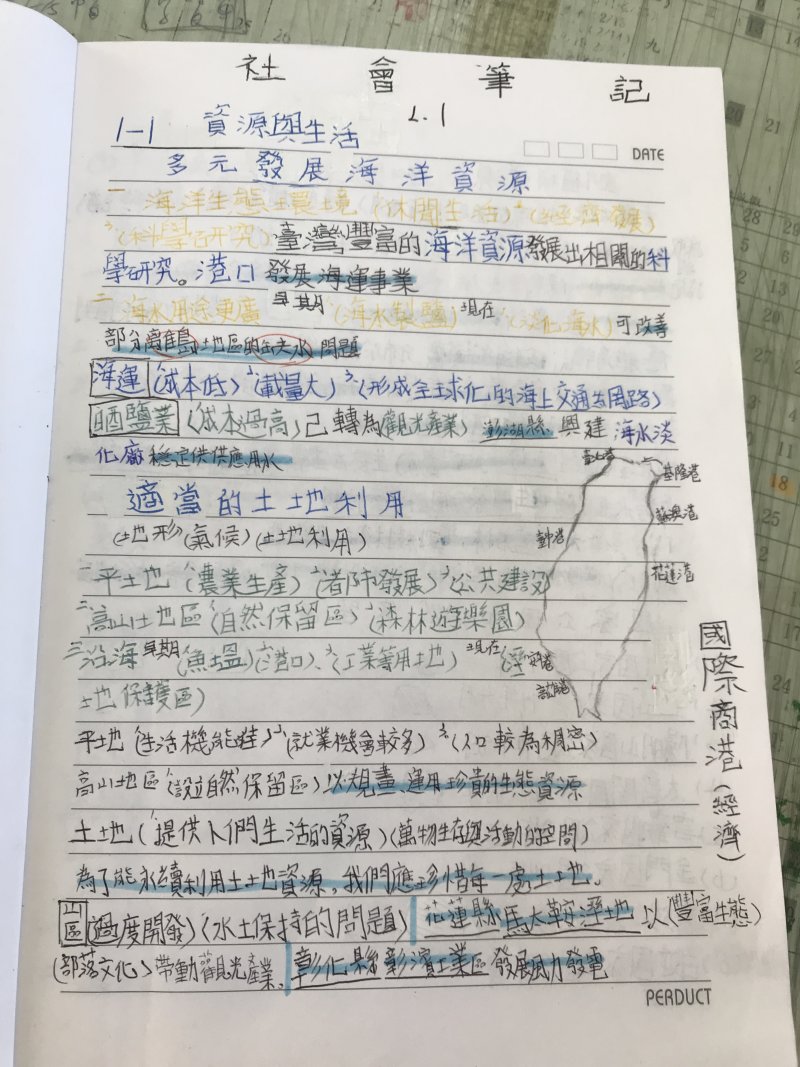 社會筆記
L.1
1-1 資源與生活
DATE
多元發展海洋資源
一 海洋生態環境(休閒生活)²(經濟發展)
³(科學研究)臺灣豐富的海洋資源發展出相關的科
學研究。港口發展海運事業
二 海水用途更廣 早期(海水製鹽)現在(淡化海水)可改善
部分離島土地區的缺水問題
海運(成本低)²(載量大)³(形成全球化的海上交通網路)
晒鹽業(成本過高)已轉為(觀光產業)澎湖縣興建海水淡
化廠穩定供供應用水
適當的土地利用
(地形)(氣候)(土地利用)
一平土地(農業生產)²(都市發展)³(公共建設
二高山土地區(自然保留區)²(森林遊樂園)
三沿海早期(魚塭)²(港口)、³(工業等用地)現在
土地保護區)
臺北港
基隆港
蘇澳港
花蓮港
高雄港
國際商港(經濟)
平地(生活機能佳)²(就業機會較多)³(人口較為稠密)
高山地區(設立自然保留區)以規畫、運用珍貴的生態資源
土地(提供人們生活的資源)(萬物生存與活動的空間)
為了能永續利用土地資源,我們應珍惜每一處土地。
山區(過度開發)(水土保持的問題)花蓮縣馬太鞍溼地以(豐富生態)
(部落文化)帶動觀光產業、彰化縣彰濱工業區發展風力發電
PERDUCT